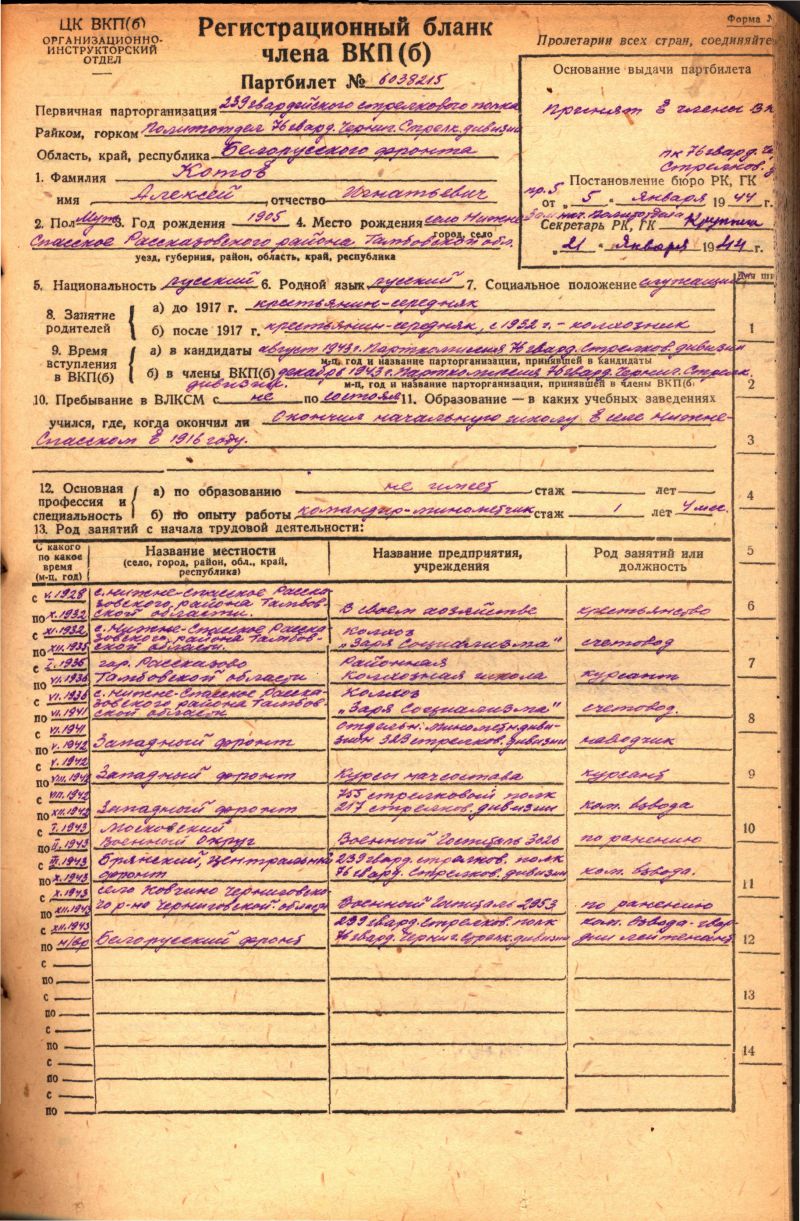 ЦК ВКП(б)
ОРГАНИЗАЦИОННО-
ИНСТРУКТОРСКИЙ
ОТДЕЛ
Регистрационный бланк
члена ВКП(б)
Партбилет № 6038215
Форма №
Пролетарии всех стран, соединяйте
Основание выдачи партбилета
Принят в члены ВК
пк 76 гвард. Че
Стрелков. д
пр. 5
Постановление бюро РК, ГК
от „ 5 “ января 1944 г.
Зам нач. Политотдела
Секретарь РК, ГК
„ 21 “ января 1944 г.
Первичная парторганизация 239 гвардейского стрелкового полка
Райком, горком Политотдел 76 гвард. Черниг. Стрелк. дивизии
Область, край, республика Белорусского фронта
1. Фамилия Котов
имя Алексей отчество Игнатьевич
2. Пол Муж 3. Год рождения 1905 4. Место рождения село Нижне
город, село
Спасское Рассказовского района Тамбовской обл.
уезд, губерния, район, область, край, республика
5. Национальность русский 6. Родной язык русский 7. Социальное положение служащий
8. Занятие родителей
а) до 1917 г. крестьянин-середняк
б) после 1917 г. крестьянин-середняк, с 1932 г. - колхозник
9. Время вступления в ВКП(б)
а) в кандидаты август 1943 г. Парткомиссия 76 гвард. Стрелков. дивизии
м-ц, год и название парторганизации, принявшей в кандидаты
б) в члены ВКП(б) декабрь 1943 г. Парткомиссия 76 гвард. Черниг. Стрелк.
дивизии.
м-ц, год и название парторганизации, принявшей в члены ВКП(б)
10. Пребывание в ВЛКСМ с не по состоял 11. Образование — в каких учебных заведениях
учился, где, когда окончил ли Окончил начальную школу в селе Нижне-
Спасском в 1916 году.
12. Основная профессия и специальность
а) по образованию не имеет стаж лет
б) по опыту работы командир-минометчик стаж 1 лет 4 мес.
13. Род занятий с начала трудовой деятельности:
С какого по какое время (м-ц, год)
Название местности (село, город, район, обл., край, республика)
Название предприятия, учреждения
Род занятий или должность
с V.1928 по X.1932 с. Нижне-Спасское Расска-
зовского района Тамбов-
ской области. В своем хозяйстве крестьянство
с XI.1932 по XII.1935 с. Нижне-Спасское Расска-
зовского района Тамбов-
ской области. Колхоз
„Заря Социализма“ счетовод
с I.1936 по VI.1936 гор. Рассказово
Тамбовской области Районная
Колхозная школа курсант
с VI.1936 по VI.1941 с. Нижне-Спасское Расска-
зовского района Тамбов-
ской области Колхоз
„Заря Социализма“ счетовод.
с VI.1941 по V.1942 Западный фронт отдельн. минометн. диви-
зион 323 стрелков. дивизии наводчик
с V.1942 по VIII.1942 Западный фронт Курсы начсостава курсант
с VIII.1942 по XII.1942 Западный фронт 755 стрелковой полк
217 стрелков. дивизии ком. взвода
с I.1943 по II.1943 Московский
Военный Округ Военный Госпиталь 3026 по ранению
с III.1943 по X.1943 Брянский, Центральный
фронт 239 гвард. стрелков. полк
76 гвард. Стрелков. дивизии ком. взвода.
с X.1943 по XII.1943 село Ковчино Черниговско-
го р-на Черниговской области Военный Госпиталь 2953 по ранению
с XII.1943 по н/вр Белорусский фронт 239 гвард. Стрелков. полк
76 гвард. Черниг. Стрелк. дивизии ком. взвода - гвар-
дии лейтенант
с
по
с
по
с
по
с
по
с
по
1
2
3
4
5
6
7
8
9
10
11
12
13
14